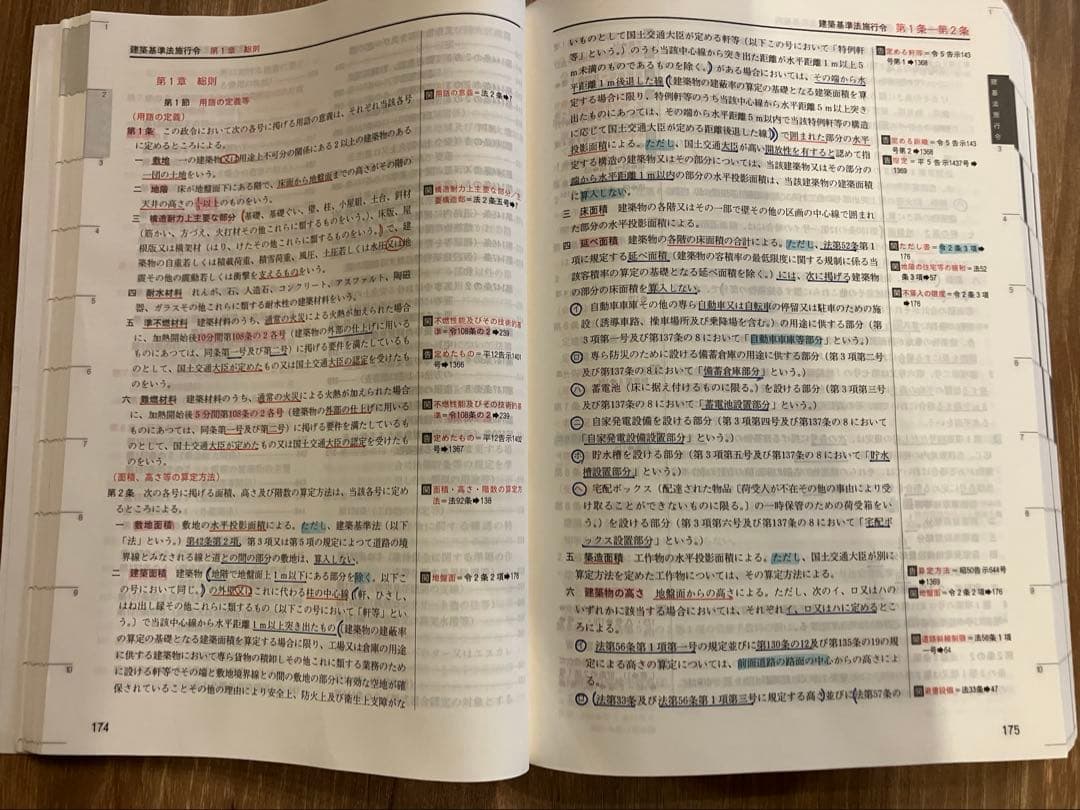 建築基準法施行令 第1章 総則
第1章 総則
第1節 用語の定義等
(用語の定義)
第1条 この政令において次の各号に掲げる用語の意義は、それぞれ当該各号
に定めるところによる。
一 敷地 一の建築物又は用途上不可分の関係にある2以上の建築物のある
一団の土地をいう。
二 地階 床が地盤面下にある階で、床面から地盤面までの高さがその階の
天井の高さの1/3以上のものをいう。
三 構造耐力上主要な部分 基礎、基礎ぐい、壁、柱、小屋組、土台、斜材
(筋かい、方づえ、火打材その他これらに類するものをいう。)、床版、屋
根版又は横架材(はり、けたその他これらに類するものをいう。)で、建
築物の自重若しくは積載荷重、積雪荷重、風圧、土圧若しくは水圧又は地
震その他の震動若しくは衝撃を支えるものをいう。
四 耐水材料 れんが、石、人造石、コンクリート、アスファルト、陶磁
器、ガラスその他これらに類する耐水性の建築材料をいう。
五 準不燃材料 建築材料のうち、通常の火災による火熱が加えられた場合
に、加熱開始後10分間第108条の2各号(建築物の外部の仕上げに用いる
ものにあつては、同条第一号及び第二号)に掲げる要件を満たしているも
のとして、国土交通大臣が定めたもの又は国土交通大臣の認定を受けたも
のをいう。
六 難燃材料 建築材料のうち、通常の火災による火熱が加えられた場合
に、加熱開始後5分間第108条の2各号(建築物の外部の仕上げに用いる
ものにあつては、同条第一号及び第二号)に掲げる要件を満たしているも
のとして、国土交通大臣が定めたもの又は国土交通大臣の認定を受けたも
のをいう。
(面積、高さ等の算定方法)
第2条 次の各号に掲げる面積、高さ及び階数の算定方法は、当該各号に定め
るところによる。
一 敷地面積 敷地の水平投影面積による。ただし、建築基準法(以下
「法」という。)第42条第2項、第3項又は第5項の規定によつて道路の境
界線とみなされる線と道との間の部分の敷地は、算入しない。
二 建築面積 建築物(地階で地盤面上1m以下にある部分を除く。以下こ
の号において同じ。)の外壁又はこれに代わる柱の中心線(軒、ひさし、
はね出し縁その他これらに類するもの(以下この号において「軒等」とい
う。)で当該中心線から水平距離1m以上突き出たもの(建築物の建蔽率
の算定の基礎となる建築面積を算定する場合に限り、工場又は倉庫の用途
に供する建築物において専ら貨物の積卸しその他これに類する業務のため
に設ける軒等でその端と敷地境界線との間の敷地の部分に有効な空地が確
保されていることその他の理由により安全上、防火上及び衛生上支障がな
関 用語の意義=法2条➡7
関 構造耐力上主要な部分/主
要構造部=法2条五号➡7
関 不燃性能及びその技術的基
準=令108条の2➡239
告 定めたもの=平12告示1401
号➡1366
関 不燃性能及びその技術的基
準=令108条の2➡239
告 定めたもの=平12告示1402
号➡1367
関 面積・高さ・階数の算定方
法=法92条➡136
関 地盤面=令2条2項➡176
174
建築基準法施行令 第1条―第2条
いものとして国土交通大臣が定める軒等(以下この号において「特例軒
等」という。)のうち当該中心線から突き出た距離が水平距離1m以上5
m未満のものであるものを除く。)がある場合においては、その端から水
平距離1m後退した線(建築物の建蔽率の算定の基礎となる建築面積を算
定する場合に限り、特例軒等のうち当該中心線から水平距離5m以上突き
出たものにあつては、その端から水平距離5m以内で当該特例軒等の構造
に応じて国土交通大臣が定める距離後退した線))で囲まれた部分の水平
投影面積による。ただし、国土交通大臣が高い開放性を有すると認めて指
定する構造の建築物又はその部分については、当該建築物又はその部分の
端から水平距離1m以内の部分の水平投影面積は、当該建築物の建築面積
に算入しない。
三 床面積 建築物の各階又はその一部で壁その他の区画の中心線で囲まれ
た部分の水平投影面積による。
四 延べ面積 建築物の各階の床面積の合計による。ただし、法第52条第1
項に規定する延べ面積(建築物の容積率の最低限度に関する規制に係る当
該容積率の算定の基礎となる延べ面積を除く。)には、次に掲げる建築物
の部分の床面積を算入しない。
イ 自動車車庫その他の専ら自動車又は自転車の停留又は駐車のための施
設(誘導車路、操車場所及び乗降場を含む。)の用途に供する部分(第
3項第一号及び第137条の8において「自動車車庫等部分」という。)
ロ 専ら防災のために設ける備蓄倉庫の用途に供する部分(第3項第二号
及び第137条の8において「備蓄倉庫部分」という。)
ハ 蓄電池(床に据え付けるものに限る。)を設ける部分(第3項第三号
及び第137条の8において「蓄電池設置部分」という。)
ニ 自家発電設備を設ける部分(第3項第四号及び第137条の8において
「自家発電設備設置部分」という。)
ホ 貯水槽を設ける部分(第3項第五号及び第137条の8において「貯水
槽設置部分」という。)
ヘ 宅配ボックス(配達された物品(荷受人が不在その他の事由により受
け取ることができないものに限る。)の一時保管のための荷受箱をい
う。)を設ける部分(第3項第六号及び第137条の8において「宅配ボ
ックス設置部分」という。)
五 築造面積 工作物の水平投影面積による。ただし、国土交通大臣が別に
算定方法を定めた工作物については、その算定方法による。
六 建築物の高さ 地盤面からの高さによる。ただし、次のイ、ロ又はハの
いずれかに該当する場合においては、それぞれイ、ロ又はハに定めるとこ
ろによる。
イ 法第56条第1項第一号の規定並びに第130条の12及び第135条の19の規
定による高さの算定については、前面道路の路面の中心からの高さによ
る。
ロ 法第33条及び法第56条第1項第三号に規定する高さ並びに法第57条の
告 定める軒等=令5告示143
号第1➡1368
告 定める距離=令5告示143
号第2➡1368
告 指定=平5告示1437号➡
1369
関 ただし書=令2条3項➡
176
関 地階の住宅等の緩和=法52
条3項➡57
関 不算入の限度=令2条3項
➡176
告 算定方法=昭50告示644号
➡1369
関 地盤面=令2条2項➡176
関 道路斜線制限=法56条1項
一号➡64
関 避雷設備=法33条➡47
建基法施行令
175